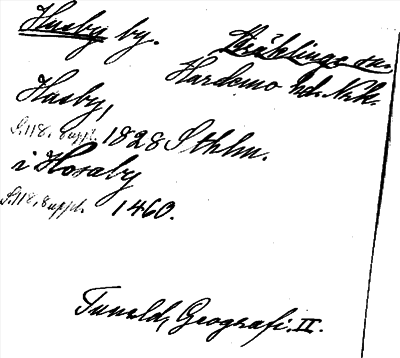 Husby by. Kräklinge sn.
Hardemo hd. Nrk.
Husby,
S.118, suppl. 1828 Sthlm.
i Hosaby
S.118, suppl. 1460.
Tuneld, Geografi. II.